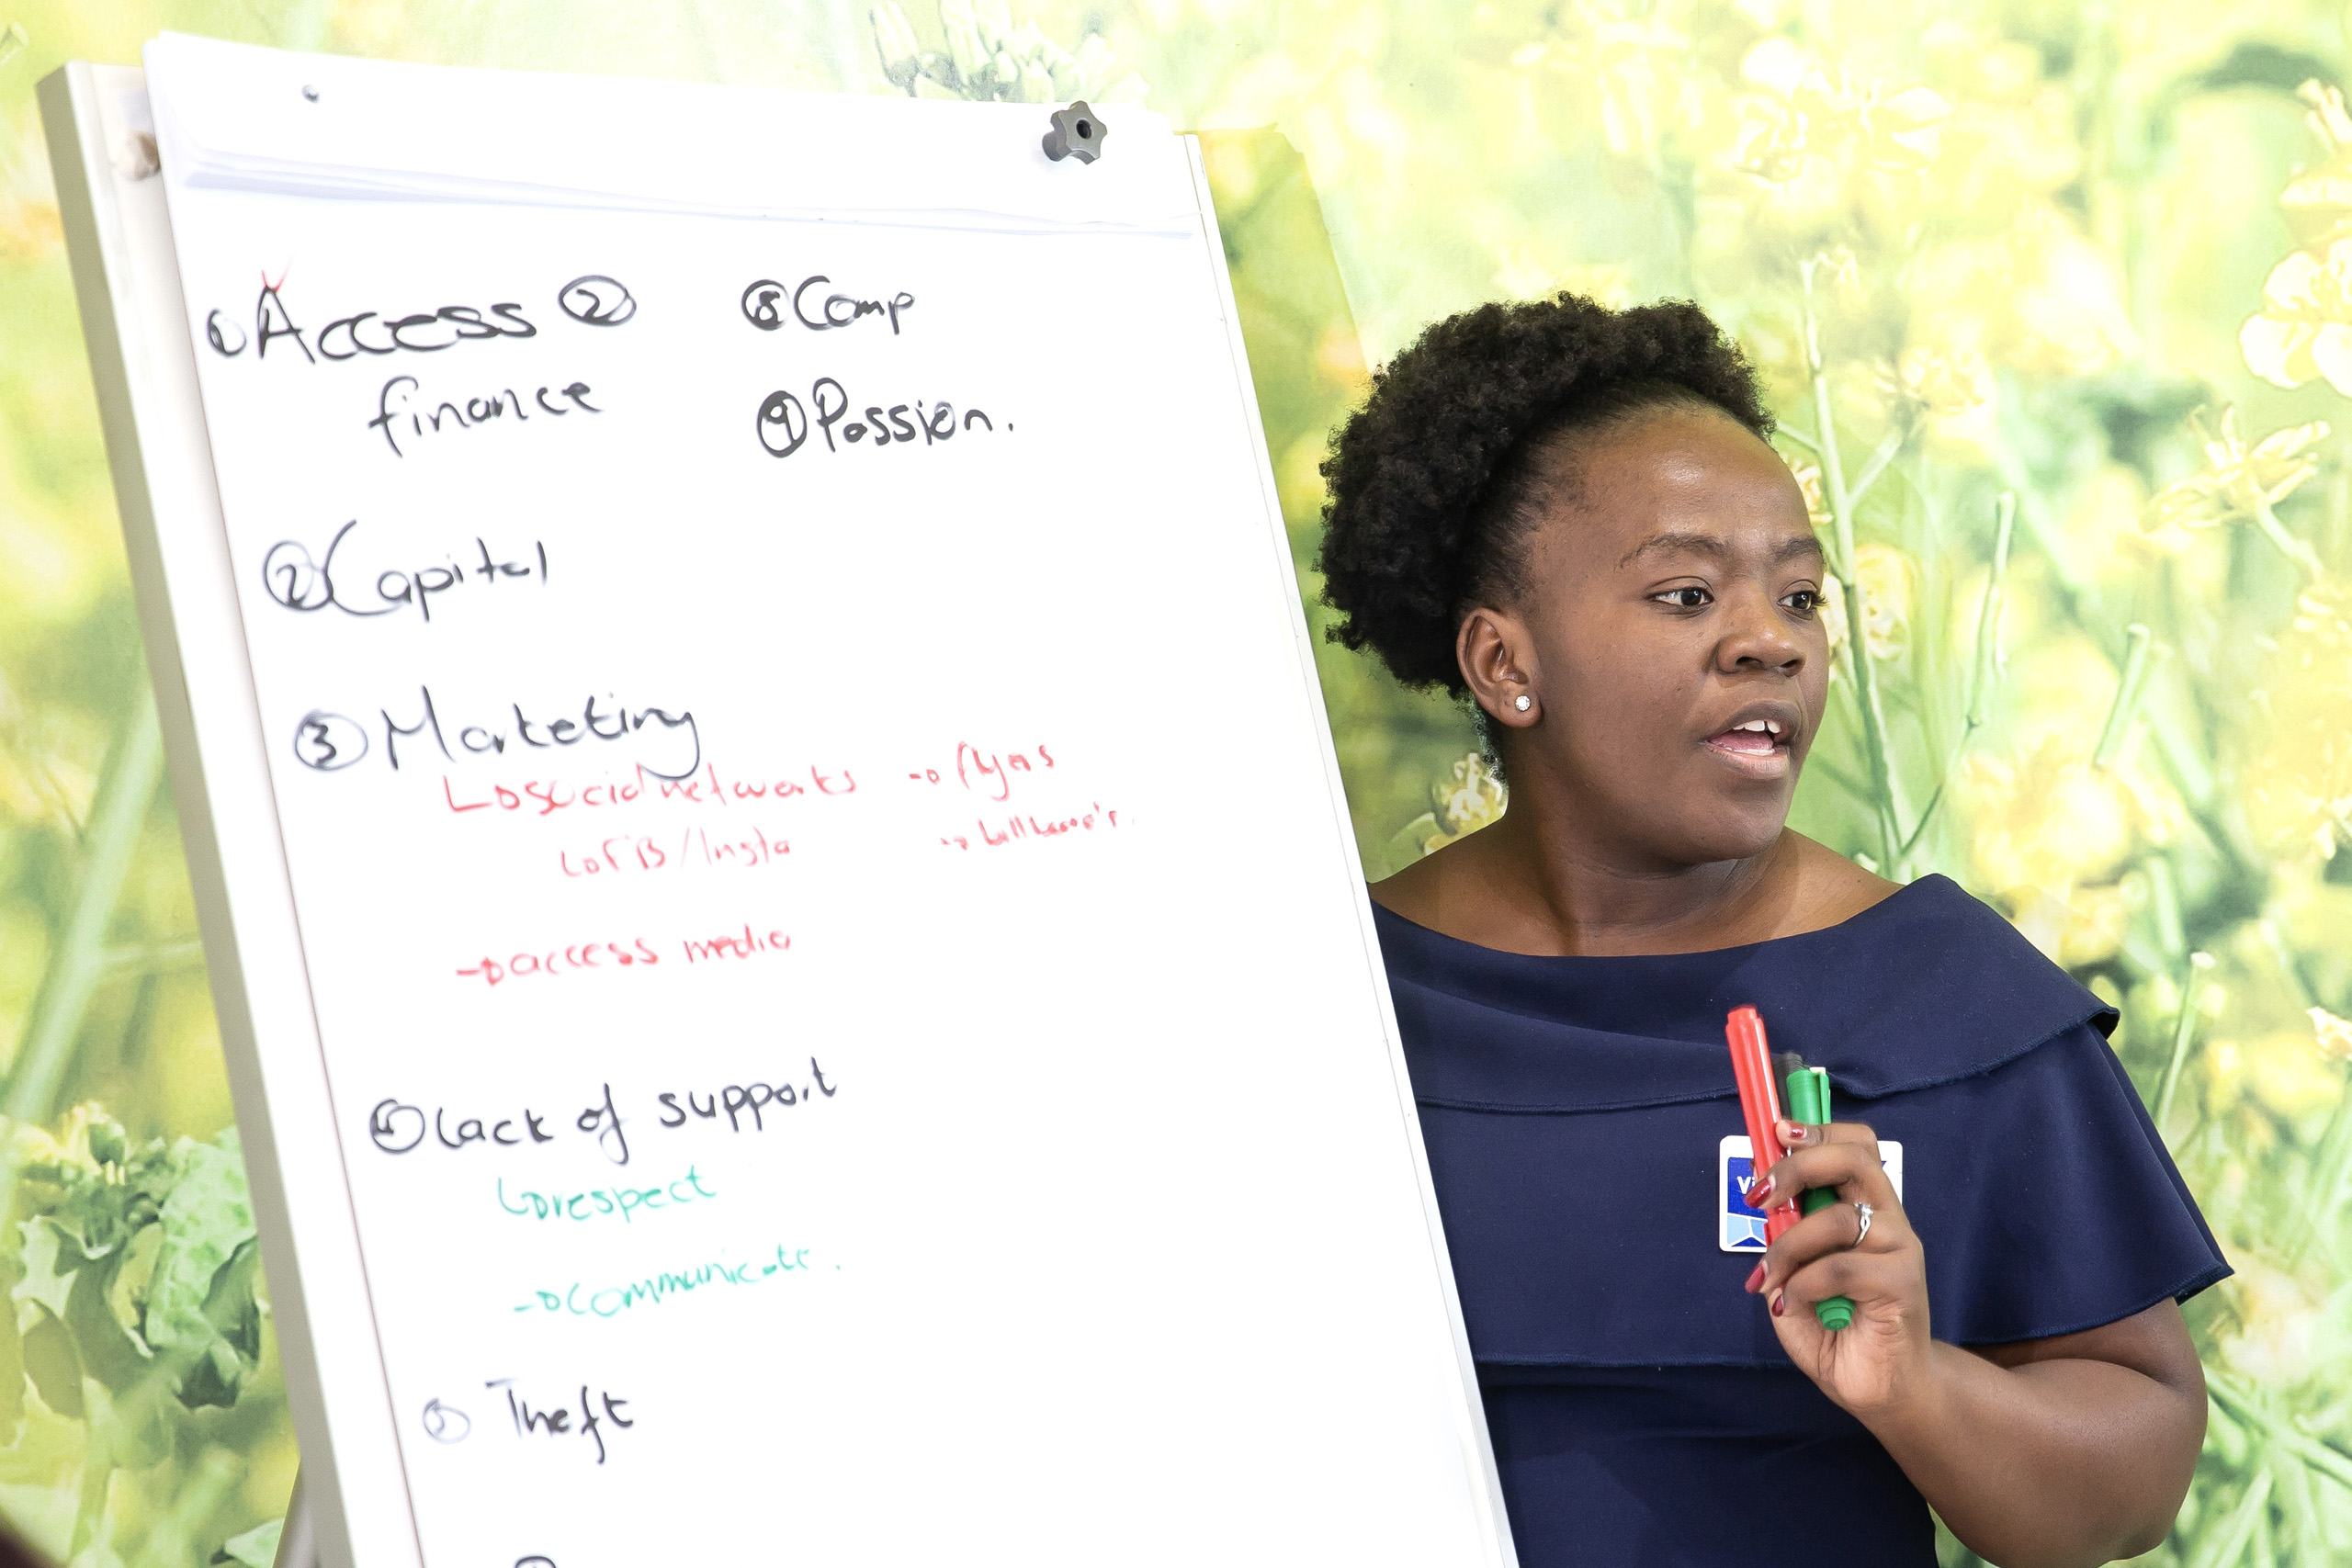 ① Access ②
finance
② Capital
③ Marketing
social networks
FB/Insta
→ flyers
→ billboard's.
→ access media
④ Lack of support
respect
→ communicate.
⑤ Theft
⑧ Comp
⑨ Passion.
Vi